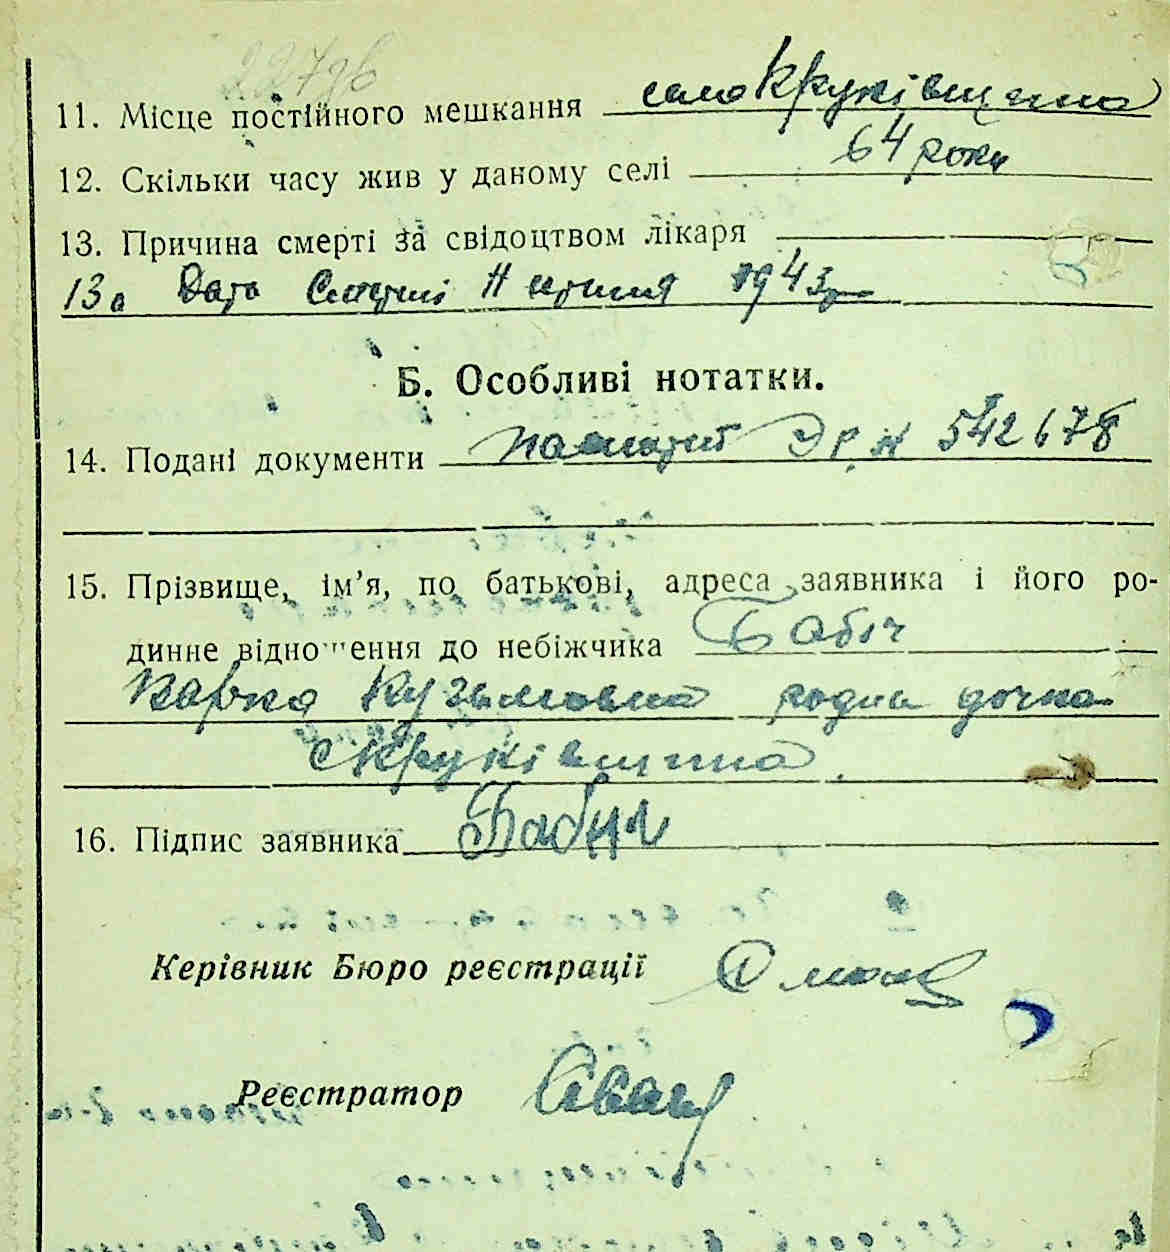 227зв
11. Місце постійного мешкання село Круківщина
12. Скільки часу жив у даному селі 64 роки
13. Причина смерті за свідоцтвом лікаря
13а Дата Смерті 11 серпня 1943р
Б. Особливі нотатки.
14. Подані документи пашпорт № 542678
15. Прізвище, ім’я, по батькові, адреса заявника і його ро-
динне відношення до небіжчика Бабіч
Кузьмовна родна дочка
с Круківщина
16. Підпис заявника Бабич
Керівник Бюро реєстрації
Реєстратор